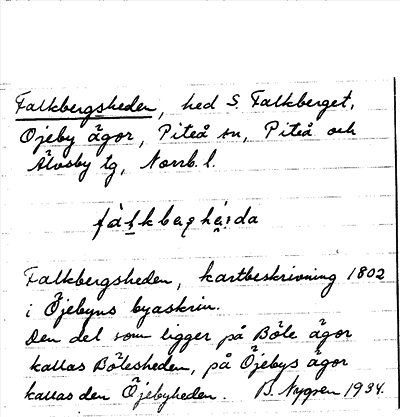 Falkbergsheden, hed S. Falkberget,
Öjeby ägor, Piteå sn, Piteå och
Älvsby tg, Norrb. l.
fàlkbærhé̜ıda
Falkbergsheden, kartbeskrivning 1802
i Öjebyns byaskrin.
Den del som ligger på Böle ägor
kallas Bölesheden, på Öjebys ägor
kallas den Öjebyheden. B. Nygren 1934.